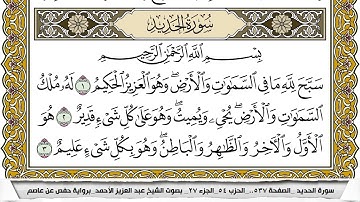 سُورَةُ الحَدِيدِ
بِسْمِ ٱللَّهِ ٱلرَّحْمَٰنِ ٱلرَّحِيمِ
سَبَّحَ لِلَّهِ مَا فِي ٱلسَّمَٰوَٰتِ وَٱلْأَرْضِۖ وَهُوَ ٱلْعَزِيزُ ٱلْحَكِيمُ ١ لَهُۥ مُلْكُ
ٱلسَّمَٰوَٰتِ وَٱلْأَرْضِۖ يُحْيِۦ وَيُمِيتُۖ وَهُوَ عَلَىٰ كُلِّ شَيْءٍ قَدِيرٌ ٢ هُوَ
ٱلْأَوَّلُ وَٱلْءَاخِرُ وَٱلظَّٰهِرُ وَٱلْبَاطِنُۖ وَهُوَ بِكُلِّ شَيْءٍ عَلِيمٌ ٣
سورة الحديد _ الصفحة ٥٣٧_ الحزب ٥٤_ الجزء ٢٧_ بصوت الشيخ عبد العزيز الأحمد_ برواية حفص عن عاصم